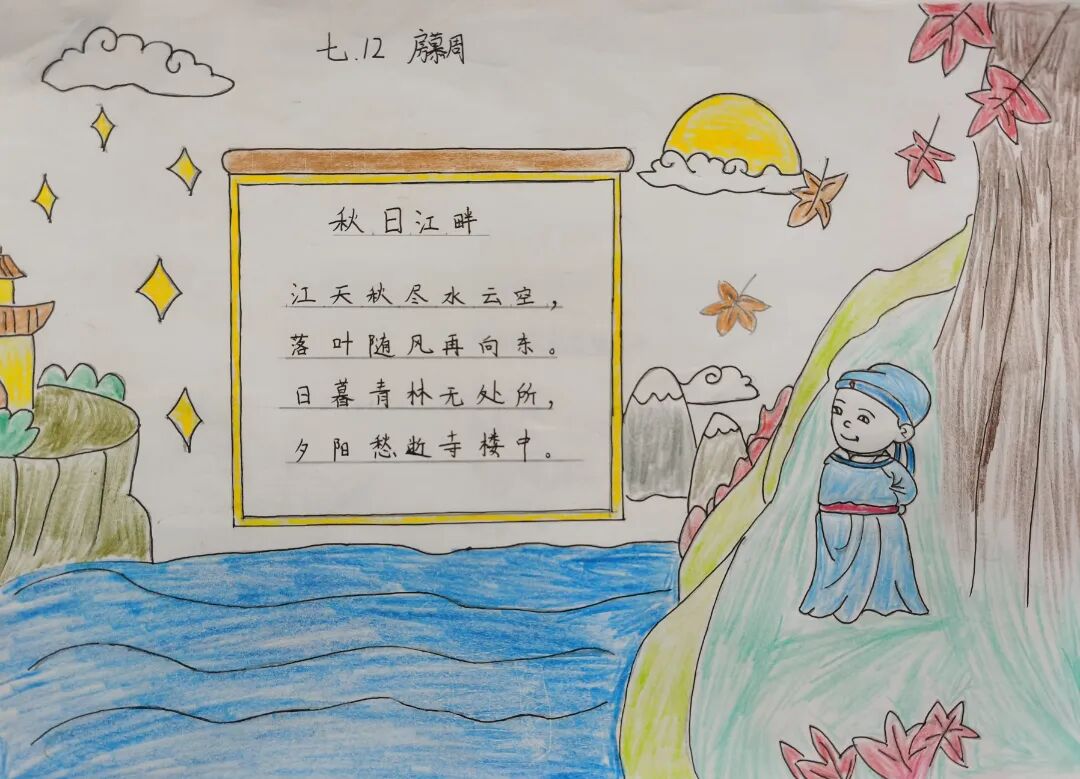 七.12 房慕周
秋日江畔
江天秋尽水云空，
落叶随风再向东。
日暮青林无处所，
夕阳愁逝寺楼中。